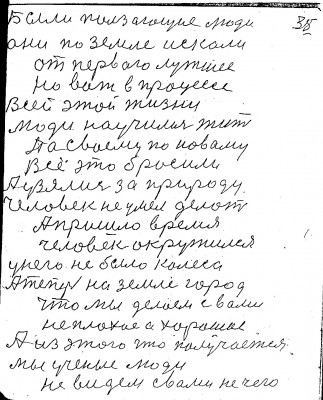 Были ползающие люди 35
они по земле искали
от первого лутшее
Но вот в процессе
Всей этой жизни
люди научились жит
По своему по новому
Всё это бросили
А взялись за природу
Человек не умел делат
А пришло время
человек окружился
у него не было колеса
А тепер на земле город
Что мы делаем с вами
неплохое а хорошае
А из этого што получается
мы ученые люди
не видем с вами не чего